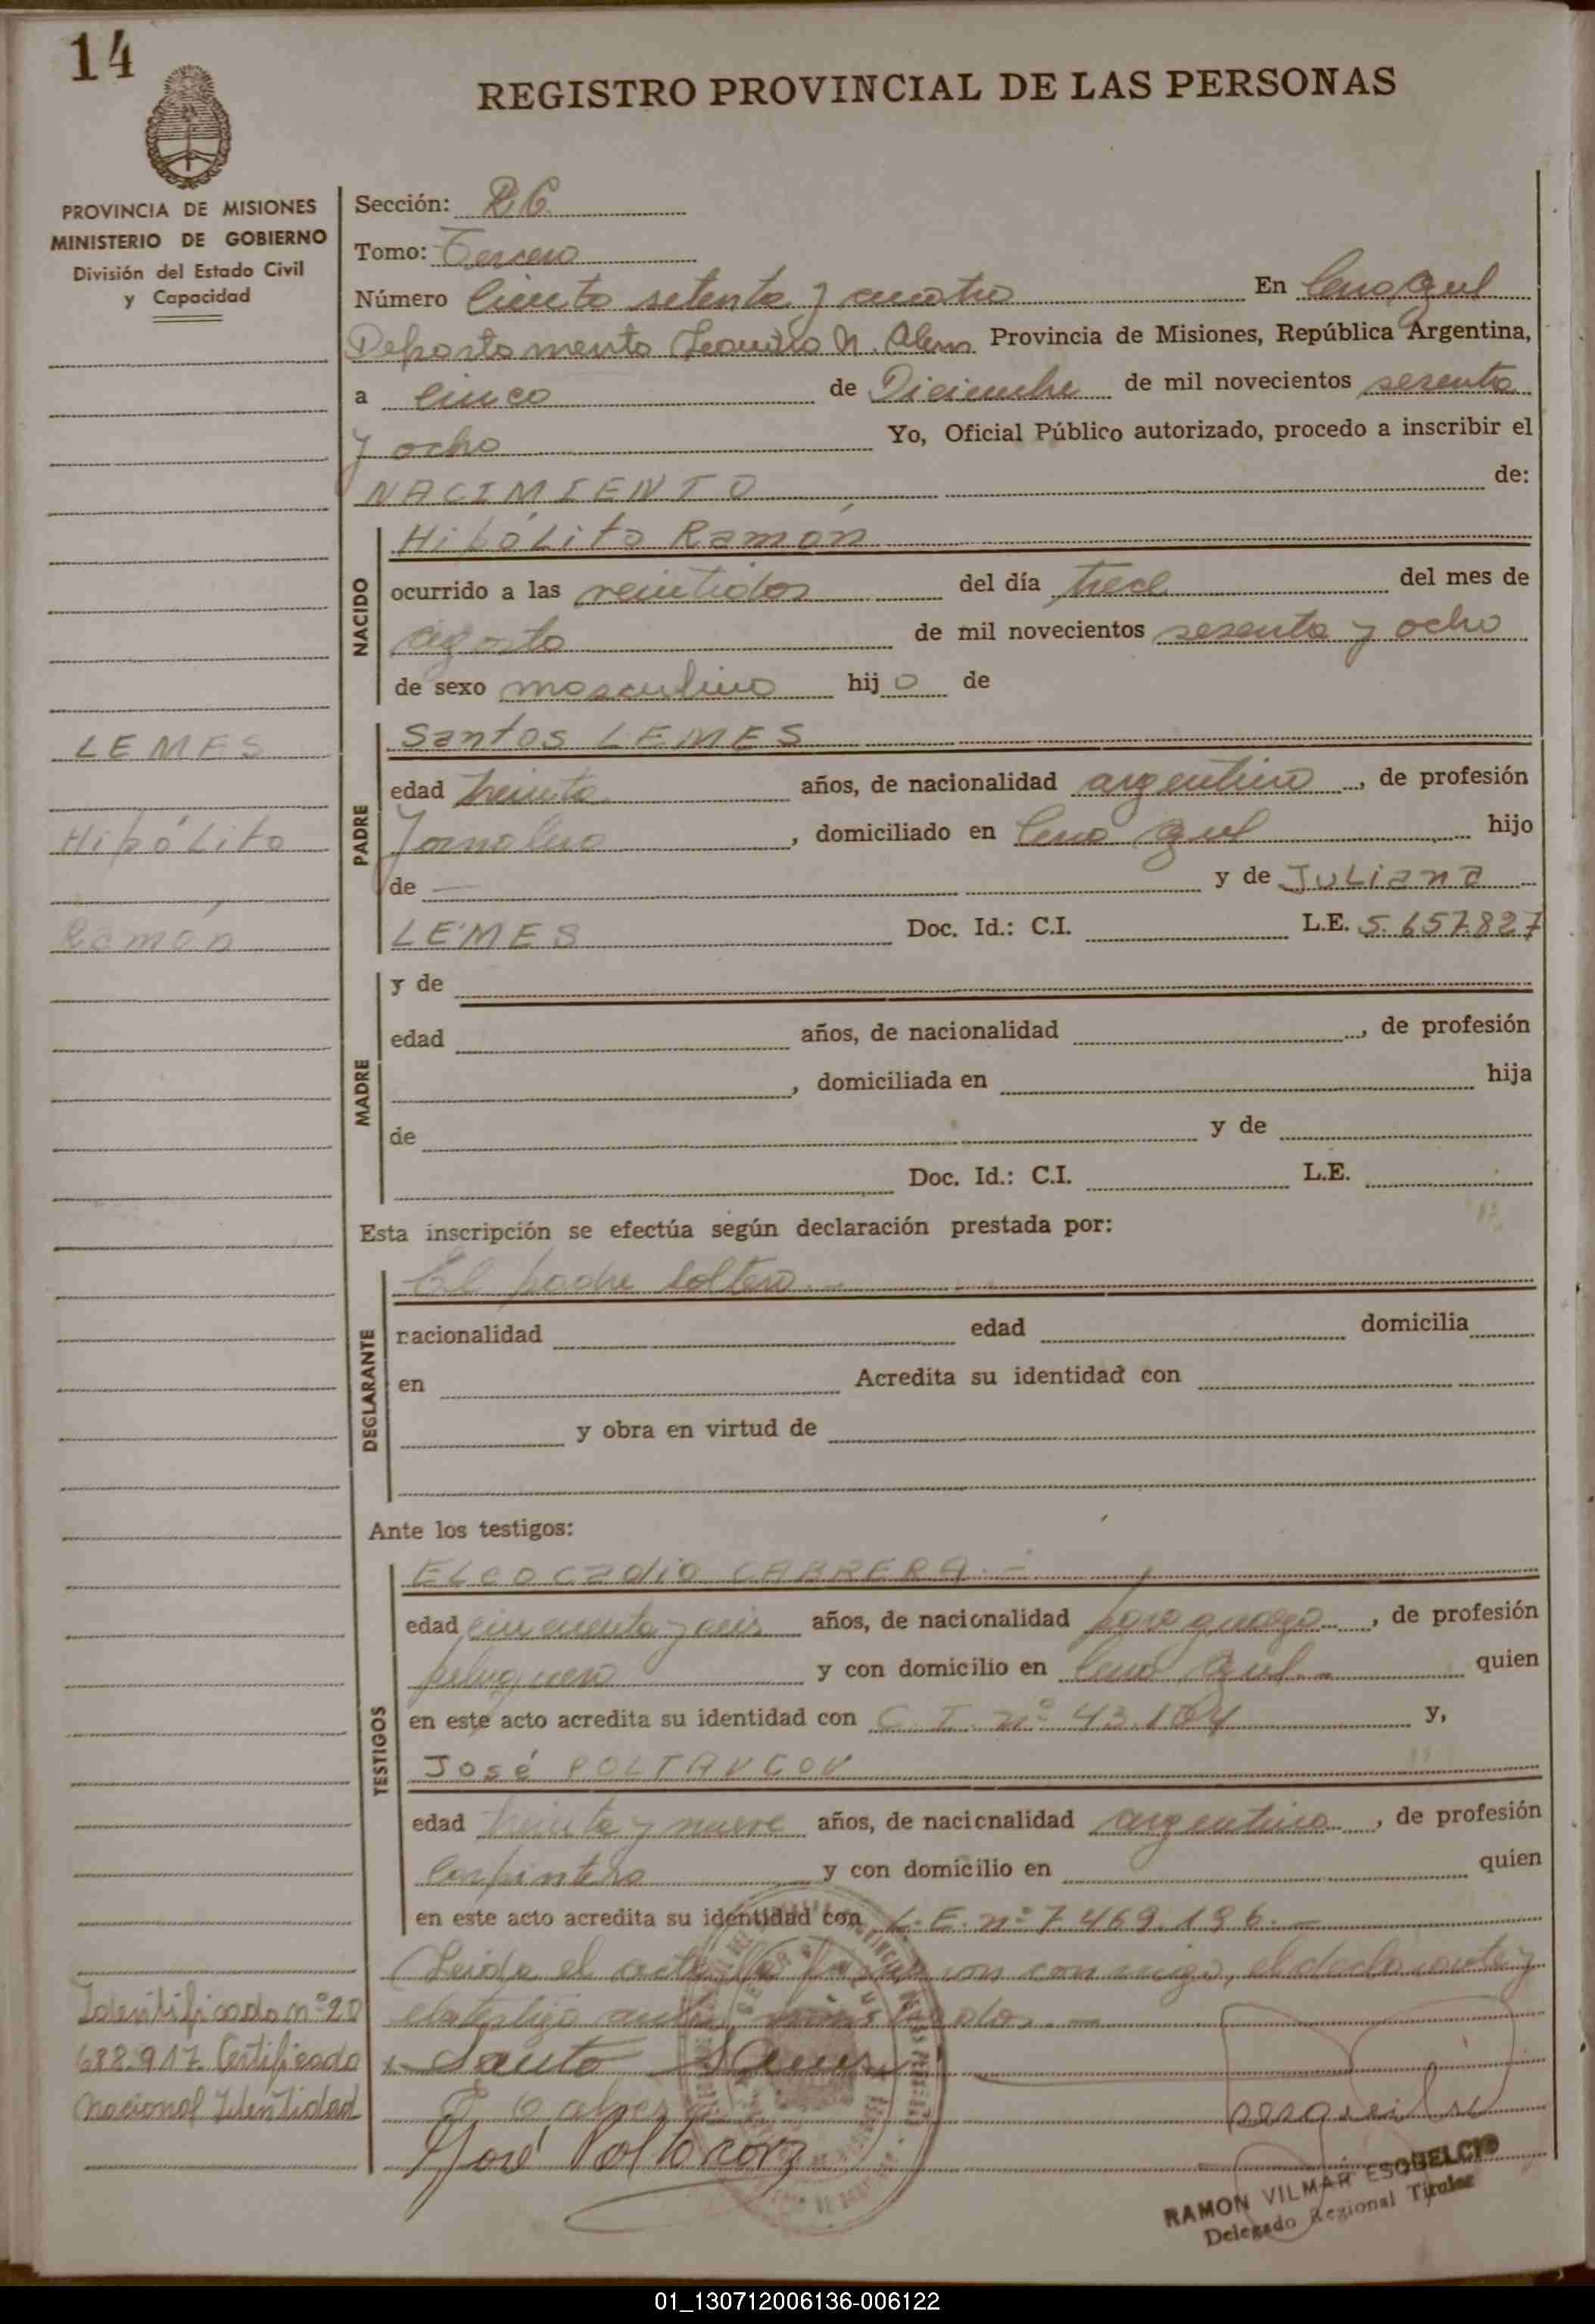 14
REGISTRO PROVINCIAL DE LAS PERSONAS
PROVINCIA DE MISIONES
MINISTERIO DE GOBIERNO
División del Estado Civil
y Capacidad
Sección: R.C.
Tomo: Tercero
Número Ciento setenta y cuatro En Cerro Azul
Departamento Leandro N. Alem Provincia de Misiones, República Argentina,
a cinco de Diciembre de mil novecientos sesenta
y ocho Yo, Oficial Público autorizado, procedo a inscribir el
NACIMIENTO de:
NACIDO
Hipólito Ramón
ocurrido a las veintidos del día trece del mes de
agosto de mil novecientos sesenta y ocho
de sexo masculino hijo de
PADRE
Santos LEMES
edad treinta años, de nacionalidad argentino, de profesión
Jornalero, domiciliado en Cerro Azul hijo
de — y de Juliana
LEMES Doc. Id.: C.I. L.E. 5.657.827
LEMES
Hipólito
Ramón
MADRE
y de
edad años, de nacionalidad , de profesión
, domiciliada en hija
de y de
Doc. Id.: C.I. L.E.
Esta inscripción se efectúa según declaración prestada por:
DECLARANTE
El padre soltero.-
nacionalidad edad domicilia
en Acredita su identidad con
y obra en virtud de
Ante los testigos:
TESTIGOS
Eleocadio CABRERA.-
edad cincuenta y seis años, de nacionalidad paraguayo, de profesión
peluquero y con domicilio en Cerro Azul.- quien
en este acto acredita su identidad con C.I. nº 43.104 y,
José POLTAVCOV
edad treinta y nueve años, de nacionalidad argentino, de profesión
Carpintero y con domicilio en quien
en este acto acredita su identidad con L.E. nº 7.469.196.-
Leida el acta la firmaron conmigo, el declarante y
el testigo
Santo Lemes
José
Identificado nº 20
688.917 Certificado
Nacional Identidad
RAMON VILMAR ESQUELCID
Delegado Regional Titular
01_130712006136-006122